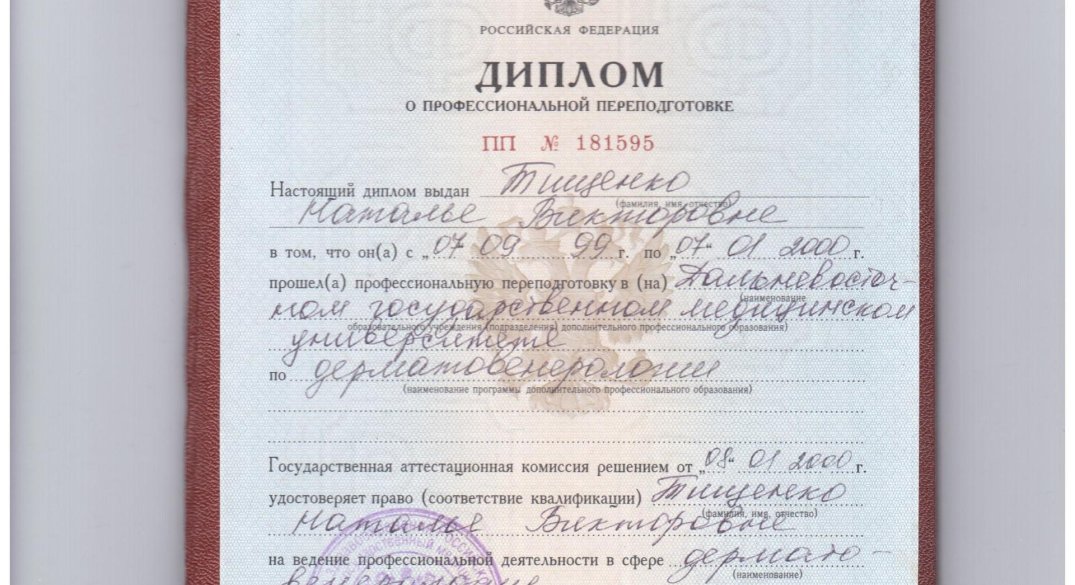 РОССИЙСКАЯ ФЕДЕРАЦИЯ
ДИПЛОМ
О ПРОФЕССИОНАЛЬНОЙ ПЕРЕПОДГОТОВКЕ
ПП № 181595
Настоящий диплом выдан Тищенко
(фамилия, имя, отчество)
Наталье Викторовне
в том, что он(а) с „07" 09 99 г. по „07" 01 2000 г.
прошел(а) профессиональную переподготовку в (на) Дальневосточ-
(наименование
ном государственном медицинском
образовательного учреждения (подразделения) дополнительного профессионального образования)
университете
по дерматовенерологии
(наименование программы дополнительного профессионального образования)
Государственная аттестационная комиссия решением от „08" 01 2000 г.
удостоверяет право (соответствие квалификации) Тищенко
(фамилия, имя, отчество)
Наталье Викторовне
на ведение профессиональной деятельности в сфере дермато-
(наименование)